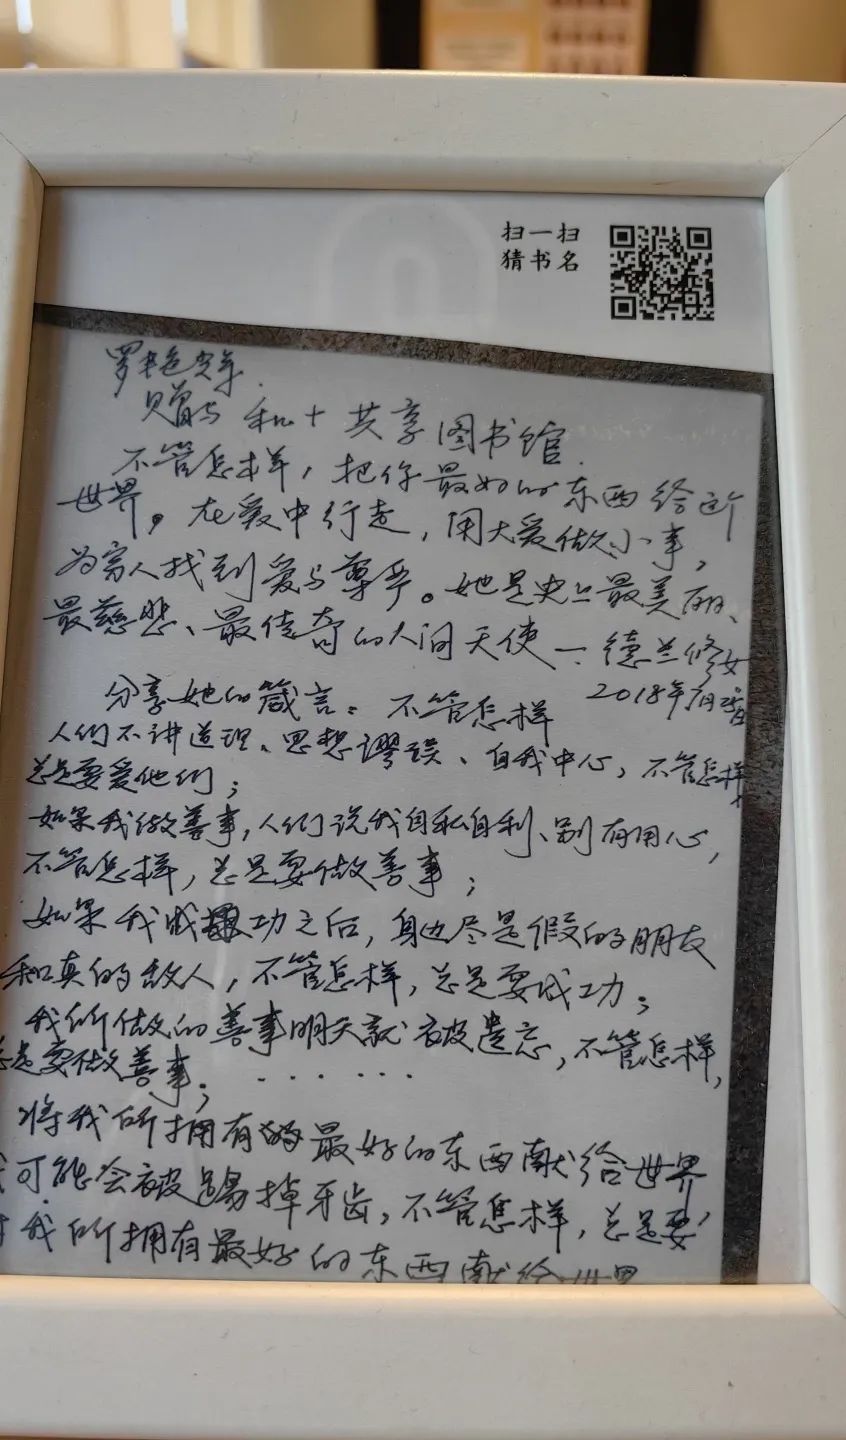 扫一扫
猜书名
罗艳
赠与 和+共享图书馆.
不管怎样，把你最好的东西给这
世界。在爱中行走，用大爱做小事，
为穷人找到爱与尊严。她是史上最美丽、
最慈悲、最传奇的人间天使一：德兰修女
2018年
分享她的箴言：不管怎样
人们不讲道理、思想谬误、自我中心，不管怎样，
总是要爱他们；
如果我做善事，人们说我自私自利、别有用心，
不管怎样，总是要做善事；
如果我成功之后，身边尽是假的朋友
和真的敌人，不管怎样，总是要成功；
我所做的善事明天就被遗忘，不管怎样，
总是要做善事；······
将我所拥有的最好的东西献给世界
我可能会被踢掉牙齿，不管怎样，总是要
将我所拥有最好的东西献给世界